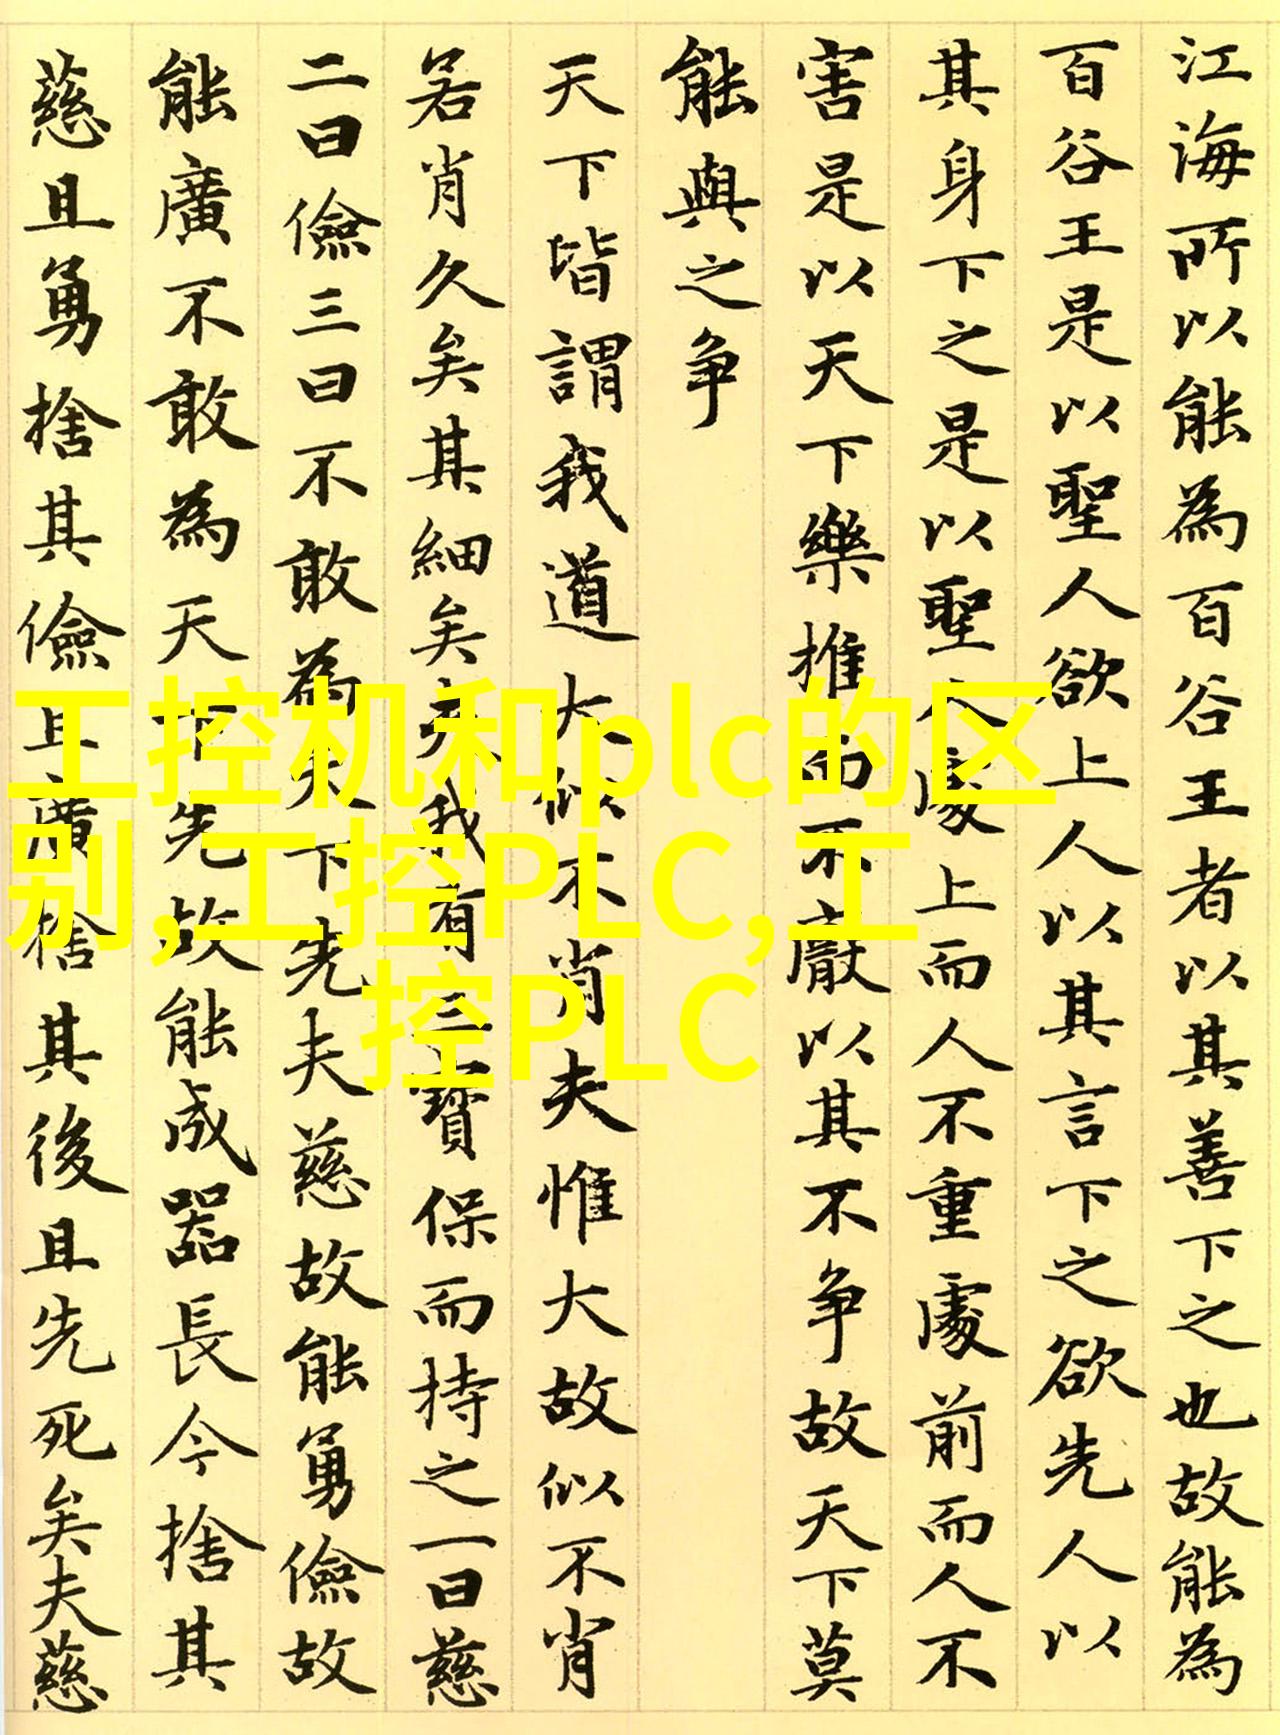 江海所以能為百谷王者以其善下之也故能為
百谷王是以聖人欲上人以其言下之欲先人以
其身下之是以聖人處上而人不重處前而人不
害是以天下樂推而不厭以其不争故天下莫
能與之争
天下皆謂我道大似不肖夫惟大故似不肖
若肖久矣其細矣夫我有三寶保而持之一曰慈
二曰儉三曰不敢為天下先夫慈故能勇儉故
能廣不敢為天下先故能成器長今捨其
慈且勇捨其儉且廣捨其後且先死矣夫慈
工控机和plc的区
别,工控PLC,工
控PLC